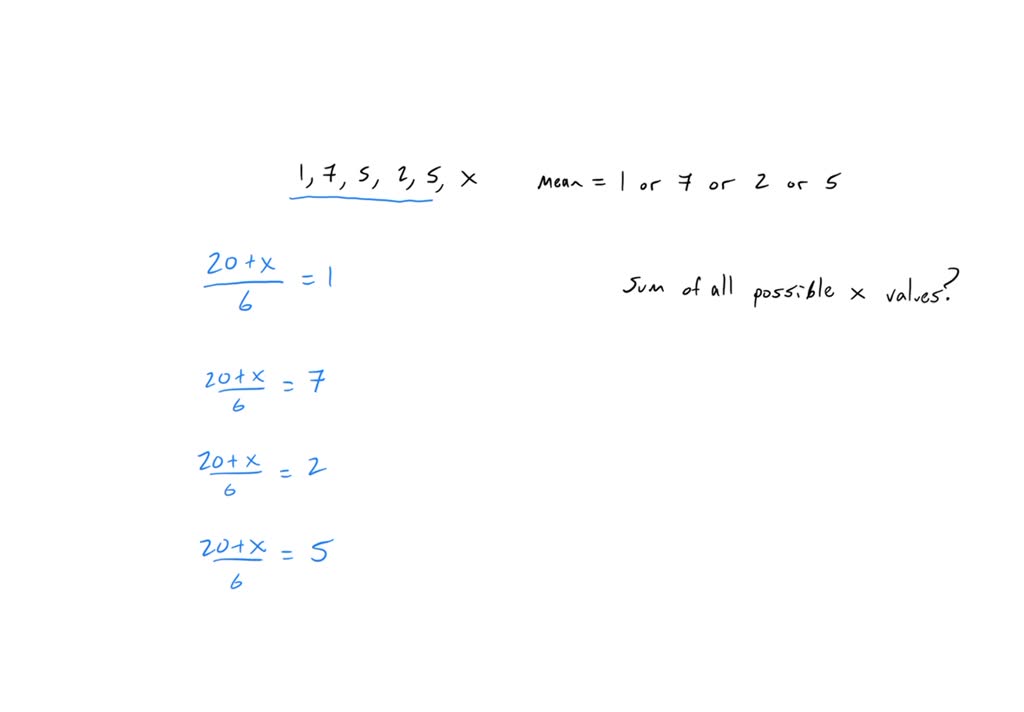 1, 7, 5, 2, 5, x mean = 1 or 7 or 2 or 5
20+x/6 = 1
Sum of all possible x values?
20+x/6 = 7
20+x/6 = 2
20+x/6 = 5